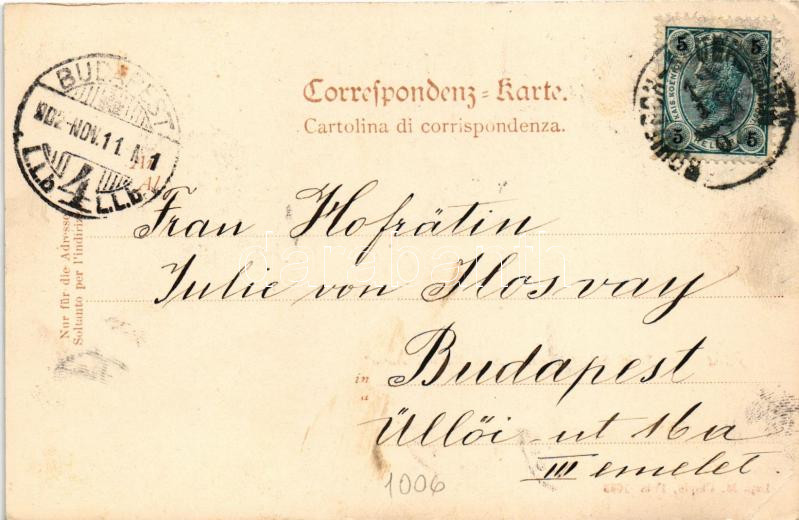 Correspondenz-Karte.
Cartolina di corrispondenza.
BUDAPEST
902-NOV.11
4
L.L.b L.L.b.
5 5
5 5
Frau Hofrätin
Julie von Ilosvay
in
a
Budapest
Üllői-ut 16a
III emelet.
Nur für die Adresse
Soltanto per l'indiriz
1006
darabanth